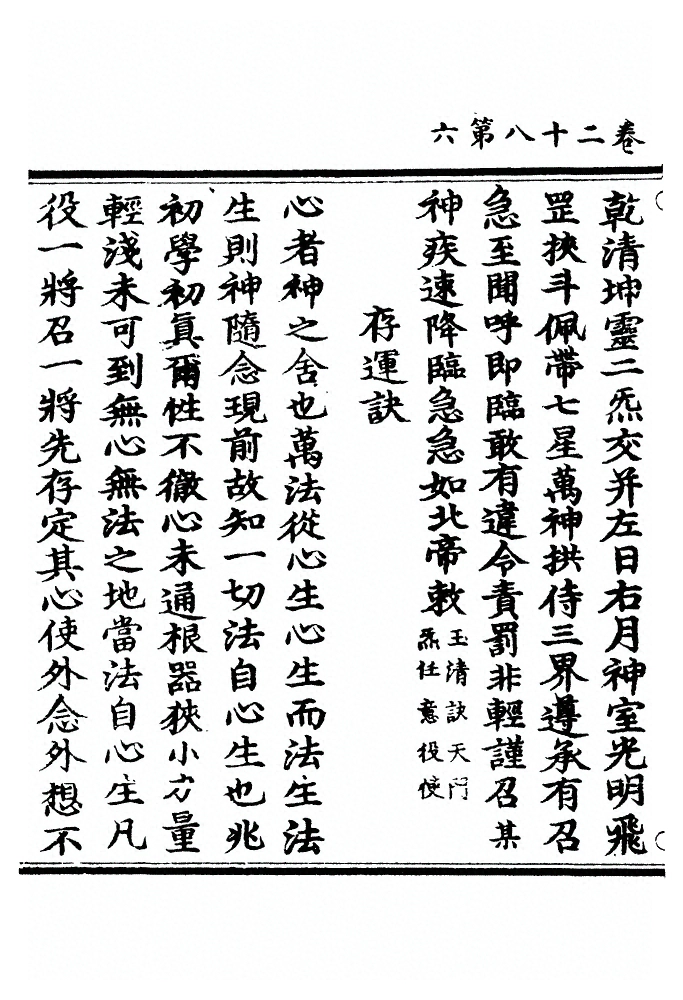 六第八十二卷
乾清坤靈二炁交并左日右月神室光明飛
罡挾斗佩帶七星萬神拱侍三界遵承有召
急至聞呼即臨敢有違令責罰非輕謹召某
神疾速降臨急急如北帝敕
玉清訣天門
炁任意役使
存運訣
心者神之舍也萬法從心生心生而法生法
生則神隨念現前故知一切法自心生也兆
初學初真爾性不徹心未通根器狹小力量
輕淺未可到無心無法之地當法自心生凡
役一將召一將先存定其心使外念外想不